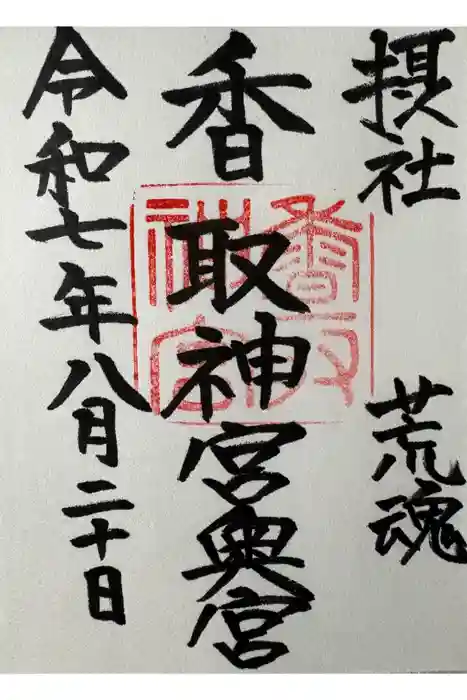 摂社 荒魂
香取神宮奥宮
香取神宮
令和七年八月二十日